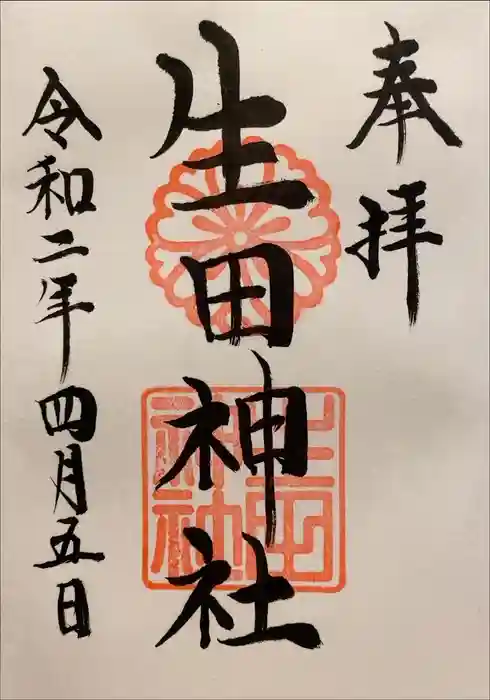 奉拝
生田神社
生田神社
令和二年四月五日